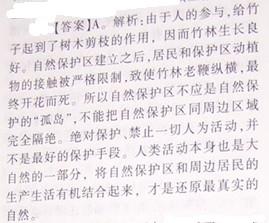 【答案】A。解析:由于人的参与,给竹
子起到了树木剪枝的作用,因而竹林生长良
好。自然保护区建立之后,居民和保护区动植
物的接触被严格限制,致使竹林老鞭纵横,最
终开花而死。所以自然保护区不应是自然保
护的“孤岛”,不能把自然保护区同周边区域
完全隔绝。绝对保护、禁止一切人为活动,并
不是最好的保护手段。人类活动本身也是大
自然的一部分,将自然保护区和周边居民的
生产生活有机结合起来,才是还原最真实的
自然。